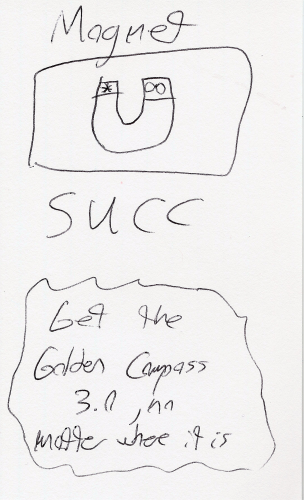 Magnet
* ∞
SUCC
Get the
Golden Compass
3.0, no
matter where it is